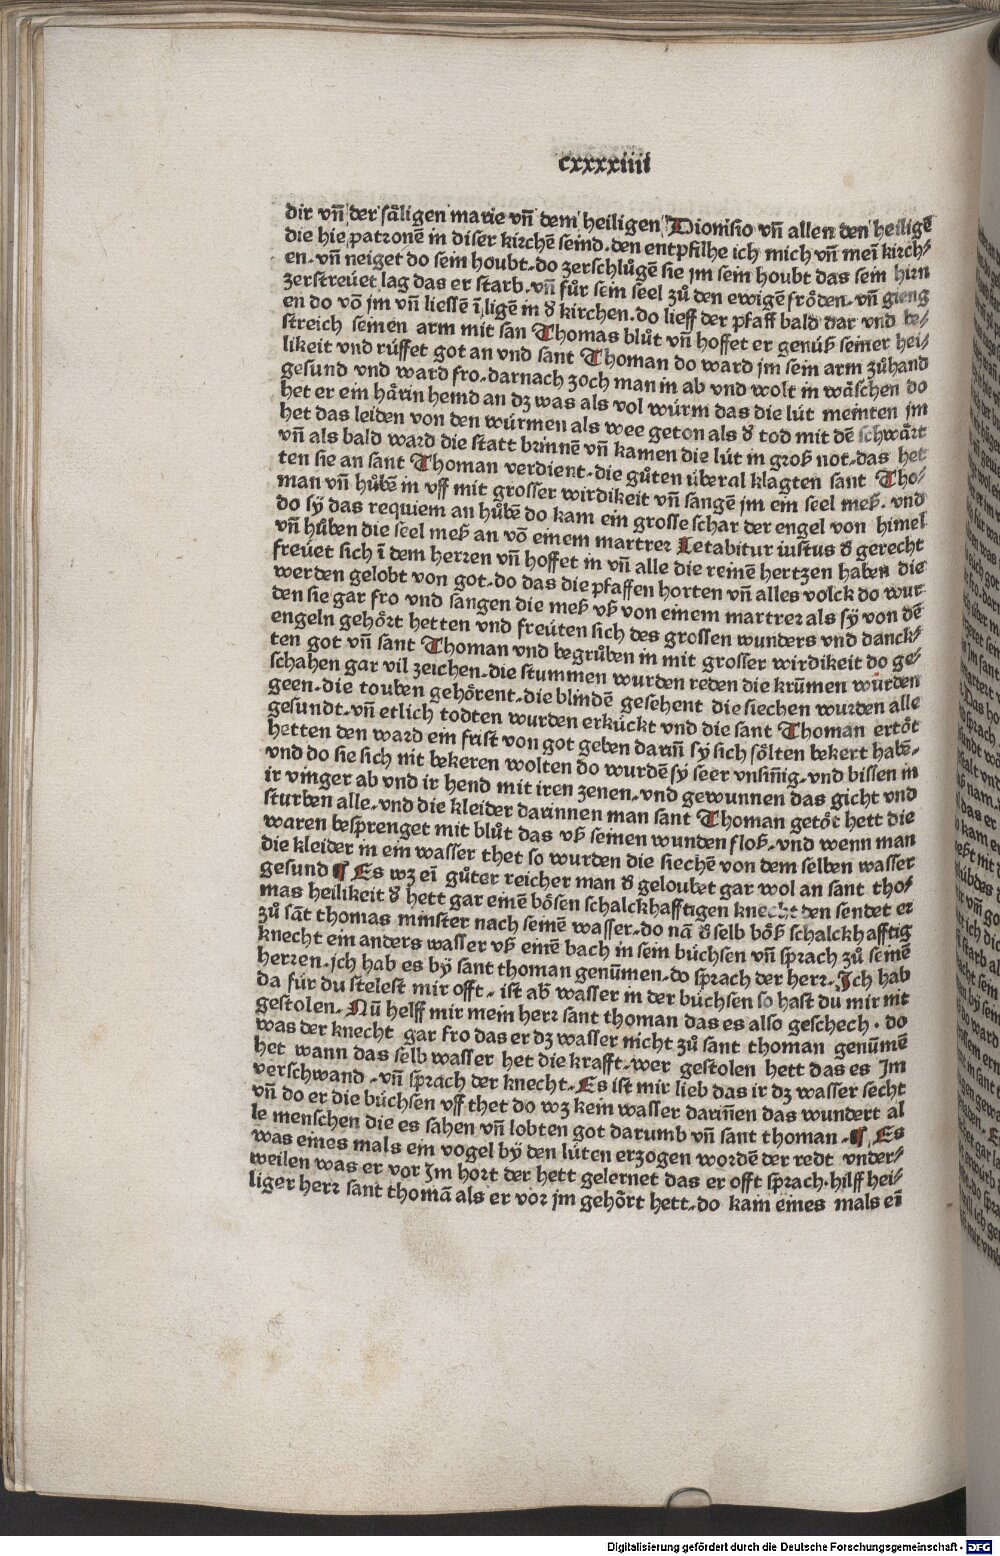 cxxxxiiii
dir vn̄ der såligen marie vn̄ dem heiligen Dionisio vn̄ allen den heiligē
die hie patronē in diser kirchē seind. den entpfilhe ich mich vn̄ mei᷑ kirch⸗
en. vn̄ neiget do sein houbt. do zerschlůgē sie jm sein houbt das sein hirn
zerstreüet lag das er starb. vn̄ für sein seel zů den ewigē frőden. vn̄ gieng
en do vō jm vn̄ liessē ī ligē in ð kirchen. do lieff der pfaff bald dar vnd be⸗
streich seinen arm mit san Thomas blůt vn̄ hoffet er genüß seiner hei⸗
likeit vnd růffet got an vnd sant Thoman do ward jm sein arm zůhand
gesund vnd ward fro. darnach zoch man in ab vnd wolt in wåschen do
het er ein hårin hemd an dz was als vol würm das die lüt meinten jm
het das leiden von den würmen als wee geton als ð tod mit dē schwårt
vn̄ als bald ward die statt brinnē vn̄ kamen die lüt in groß not. das het
ten sie an sant Thoman verdient. die gůten überal klagten sant Tho⸗
man vn̄ hůbē in vff mit grosser wirdikeit vn̄ sangē jm ein seel meß. vnd
do sÿ das requiem an hůbē do kam ein grosse schar der engel von himel
vn̄ hůben die seel meß an vō einem martrer Letabitur iustus ð gerecht
freüet sich ī dem herren vn̄ hoffet in vn̄ alle die reinē hertzen haben die
werden gelobt von got. do das die pfaffen horten vn̄ alles volck do wur
den sie gar fro vnd sangen die meß vß von einem martrer als sÿ von dē
engeln gehőrt hetten vnd freüten sich des grossen wunders vnd danck⸗
ten got vn̄ sant Thoman vnd begrůben in mit grosser wirdikeit do ge⸗
schahen gar vil zeichen. die stummen wurden reden die krümen wurden
geen. die touben gehőrent. die blindē gesehent die siechen wurden alle
gesundt. vn̄ etlich todten wurden erkückt vnd die sant Thoman ertőt
hetten den ward ein frist von got geben darin̄ sÿ sich sőlten bekert habē.
vnd do sie sich nit bekeren wolten do wurdē sÿ seer vnsin̄ig. vnd bissen in
ir vinger ab vnd ir hend mit iren zenen. vnd gewunnen das gicht vnd
sturben alle. vnd die kleider darinnen man sant Thoman getőt hett die
waren besprenget mit blůt das vß seinen wunden floß. vnd wenn man
die kleider in ein wasser thet so wurden die siechē von dem selben wasser
gesund ¶ Es wz ei᷑ gůter reicher man ð geloubet gar wol an sant tho⸗
mas heilikeit ð hett gar einē bősen schalckhafftigen knecht den sendet er
zů sāt thomas minster nach seinē wasser. do nā ð selb bőß schalckhafftig
knecht ein anders wasser vß einē bach in sein büchsen vn̄ sprach zů seinē
herren. jch hab es bÿ sant thoman genūmen. do sprach der herr. Ich hab
da für du stelest mir offt. ist ab᷑ wasser in der büchsen so hast du mir nit
gestolen. Nū helff mir mein herr sant thoman das es also geschech. do
was der knecht gar fro das er dz wasser nicht zů sant thoman genūmē
het wann das selb wasser het die krafft. wer gestolen hett das es Im
verschwand. vn̄ sprach der knecht. Es ist mir lieb das ir dz wasser secht
vn̄ do er die büchsen vff thet do wz kein wasser darin̄en das wundert al
le menschen die es sahen vn̄ lobten got darumb vn̄ sant thoman. ¶ Es
was eines mals ein vogel bÿ den lüten erzogen wordē der redt vnder⸗
weilen was er vor Im hort der hett gelernet das er offt sprach. hilff hei⸗
liger herr sant thomā als er vor jm gehőrt hett. do kam eines mals ei᷑
Digitalisierung gefördert durch die Deutsche Forschungsgemeinschaft - DFG